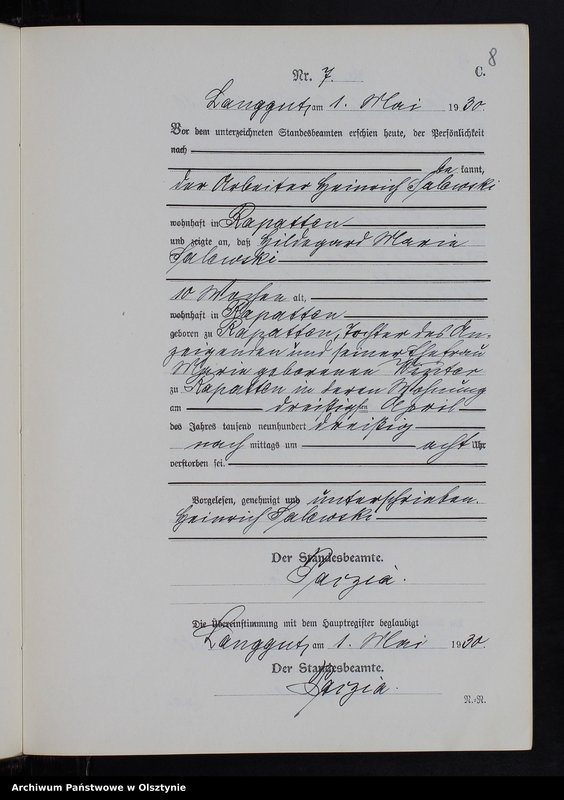 8
Nr. 7. C.
Langgut, am 1. Mai 1930.
Vor dem unterzeichneten Standesbeamten erschien heute, der Persönlichkeit
nach
be kannt,
der Arbeiter Heinrich Salewski
wohnhaft in Rapatten
und zeigte an, daß Hildegard Marie
Salewski
10 Wochen alt,
wohnhaft in Rapatten
geboren zu Rapatten, Tochter des An-
zeigenden und seiner Ehefrau
Marie geborenen
zu Rapatten in deren Wohnung
am dreißigsten April
des Jahres tausend neunhundert dreißig
nach mittags um acht Uhr
verstorben sei.
Vorgelesen, genehmigt und unterschrieben.
Heinrich Salewski
Der Standesbeamte.
Die Übereinstimmung mit dem Hauptregister beglaubigt
Langgut, am 1. Mai 1930.
Der Standesbeamte.
N.-N.
Archiwum Państwowe w Olsztynie